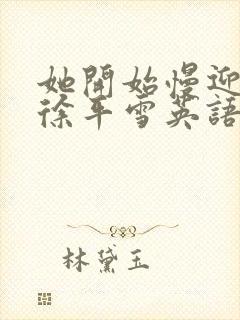 她開始慢迎
徐平雪英語
林黛玉